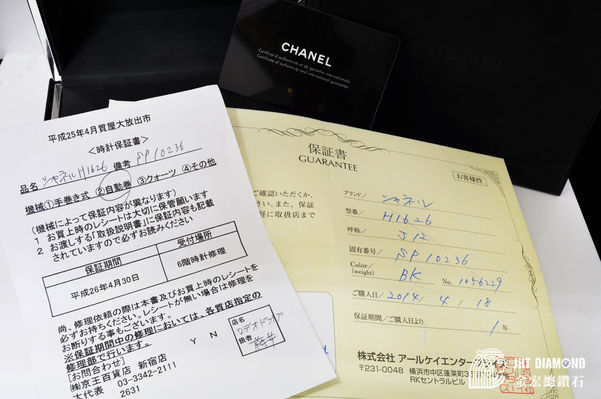 CHANEL
Certificat d'authenticité et de garantie internationale
Certificate of authenticity and international guarantee
CHANEL
平成25年4月質屋大放出市
<時計保証書>
品名 シャネルH1626 備考 SP10236
機械①手巻き式 ②自動巻 ③クォーツ ④その他
(機械によって保証内容が異なります)
1 お買上時のレシートは大切に保管願います
2 お渡しする「取扱説明書」に保証内容も記載
されていますので必ずお読みください
保証期間 受付場所
平成26年4月30日 6階時計修理
尚、修理依頼の際は本書及びお買上時のレシートを
必ずお持ちください。レシートが無い場合は修理を
お断りする事もございます。
※保証期間中の修理においては、各質店指定の
修理部で行います。
Y N
店名
扱者
[お問合わせ]
㈱京王百貨店 新宿店
03-3342-2111
大代表 2631
保証書
GUARANTEE
お客様控
ご確認いただくか、
さい。また、保証
軽に取扱店まで
ブランド/ シャネル
型番/ H1626
呼称/ J12
固有番号/ SP10236
Color/ (weight) BK No. 1056229
ご購入日/ 2014. 4. 18
保証期間/ご購入日より 1 年
株式会社 アールケイエンタープライズ
〒231-0048 横浜市中区蓬莱町3
RKセントラルビル
JHT DIAMOND
金宏總鑽石